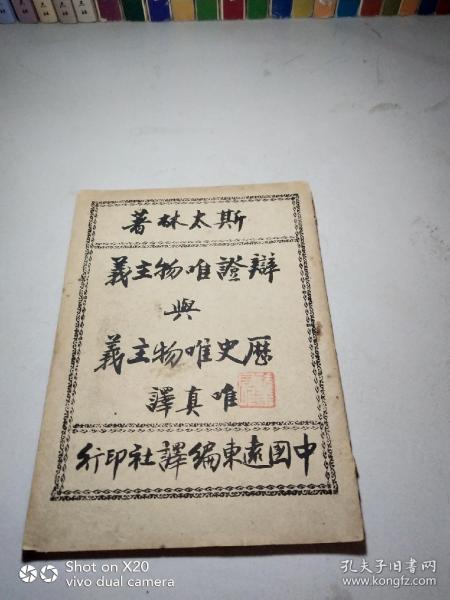 斯太林著
辯證唯物主義
與
歷史唯物主義
唯真譯
中国遠東編譯社印行
Shot on X20
vivo dual camera
孔夫子旧书网
www.kongfz.com